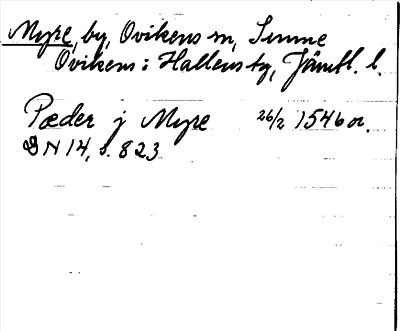 Myre, by, Ovikens sn, Sunne
Ovikens i Hallens tg, Jämtl. l.
Pæder j Myre 26/2 1546 or.
DN 14, s. 823